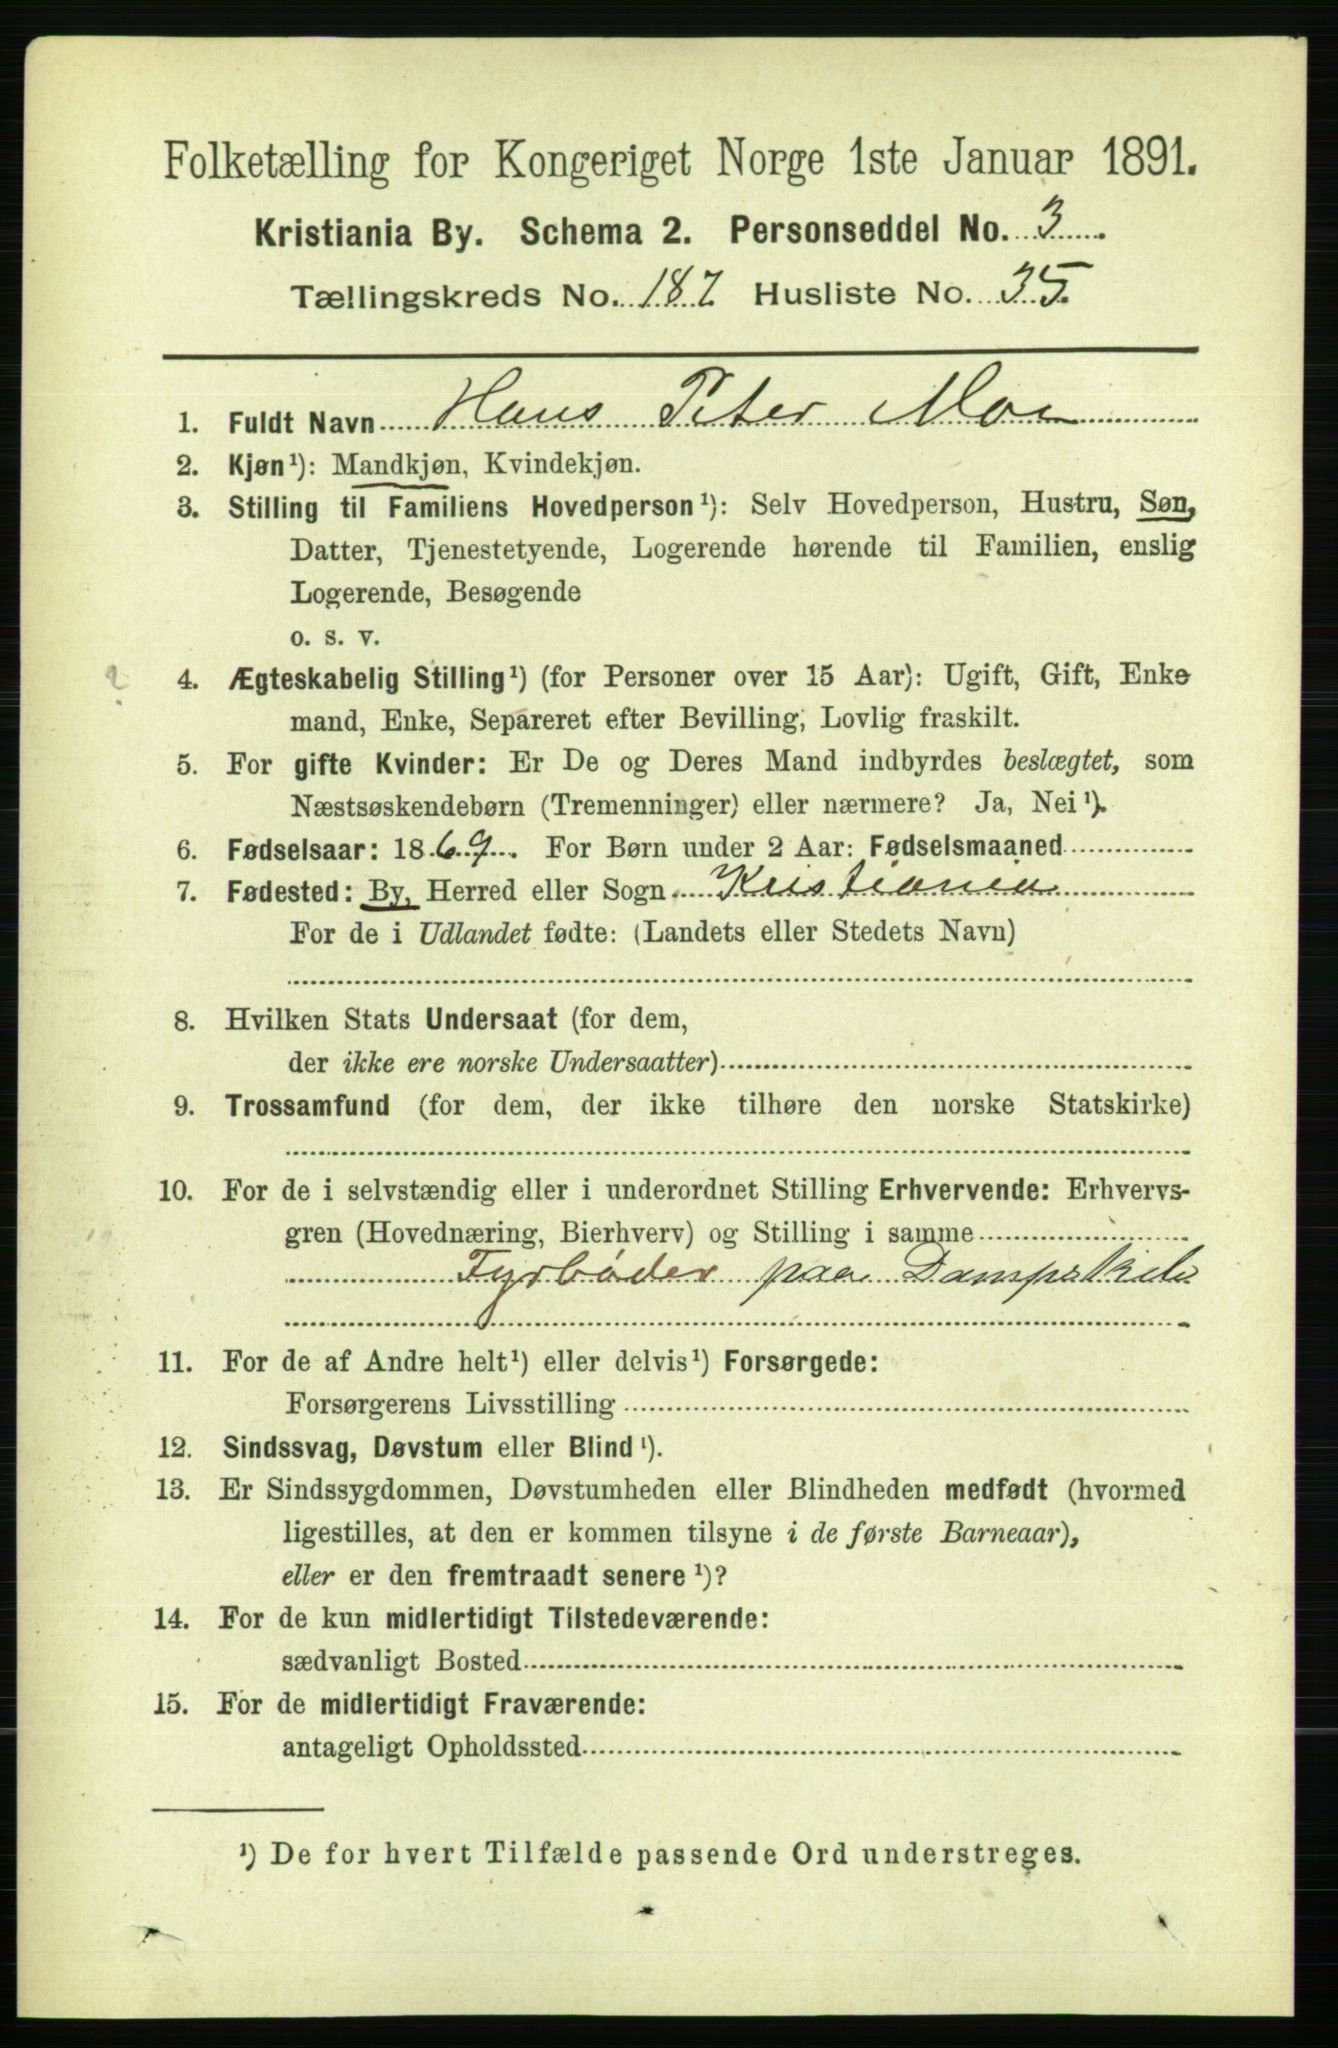 Folketælling for Kongeriget Norge 1ste Januar 1891.
Kristiania By. Schema 2. Personseddel No. 3
Tællingskreds No. 187 Husliste No. 35.
1. Fuldt Navn Hans Peter Moe
2. Kjøn¹): Mandkjøn, Kvindekjøn.
3. Stilling til Familiens Hovedperson¹): Selv Hovedperson, Hustru, Søn,
Datter, Tjenestetyende, Logerende hørende til Familien, enslig
Logerende, Besøgende
o. s. v.
4. Ægteskabelig Stilling¹) (for Personer over 15 Aar): Ugift, Gift, Enke
mand, Enke, Separeret efter Bevilling, Lovlig fraskilt.
5. For gifte Kvinder: Er De og Deres Mand indbyrdes beslægtet, som
Næstsøskendebørn (Tremenninger) eller nærmere? Ja, Nei¹).
6. Fødselsaar: 1869. For Børn under 2 Aar: Fødselsmaaned
7. Fødested: By, Herred eller Sogn Kristiania
For de i Udlandet fødte: (Landets eller Stedets Navn)
8. Hvilken Stats Undersaat (for dem,
der ikke ere norske Undersaatter)
9. Trossamfund (for dem, der ikke tilhøre den norske Statskirke)
10. For de i selvstændig eller i underordnet Stilling Erhvervende: Erhvervs-
gren (Hovednæring, Bierhverv) og Stilling i samme
Fyrbøder paa Dampskib
11. For de af Andre helt¹) eller delvis¹) Forsørgede:
Forsørgerens Livsstilling
12. Sindssvag, Døvstum eller Blind¹).
13. Er Sindssygdommen, Døvstumheden eller Blindheden medfødt (hvormed
ligestilles, at den er kommen tilsyne i de første Barneaar),
eller er den fremtraadt senere¹)?
14. For de kun midlertidigt Tilstedeværende:
sædvanligt Bosted
15. For de midlertidigt Fraværende:
antageligt Opholdssted
¹) De for hvert Tilfælde passende Ord understreges.